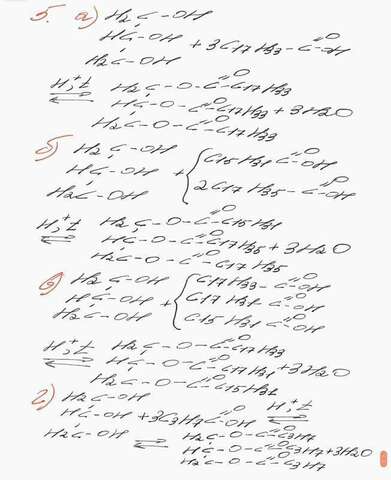 5. а) H2C-OH
HC-OH + 3C17H33-C=O-OH
H2C-OH
H+,t ⇄ H2C-O-C=O-C17H33
HC-O-C=O-C17H33 + 3H2O
H2C-O-C=O-C17H33
б) H2C-OH
HC-OH + { C15H31-C=O-OH
H2C-OH 2C17H35-C=O-OH
H+,t ⇄ H2C-O-C=O-C15H31
HC-O-C=O-C17H35 + 3H2O
H2C-O-C=O-C17H35
в) H2C-OH C17H33-C=O-OH
HC-OH + { C17H31-C=O-OH
H2C-OH C15H31-C=O-OH
H+,t ⇄ H2C-O-C=O-C17H33
HC-O-C=O-C17H31 + 3H2O
H2C-O-C=O-C15H31
г) H2C-OH
HC-OH + 3C3H7-C=O-OH H+,t ⇄
H2C-OH ⇄ H2C-O-C=O-C3H7
HC-O-C=O-C3H7 + 3H2O
H2C-O-C=O-C3H7